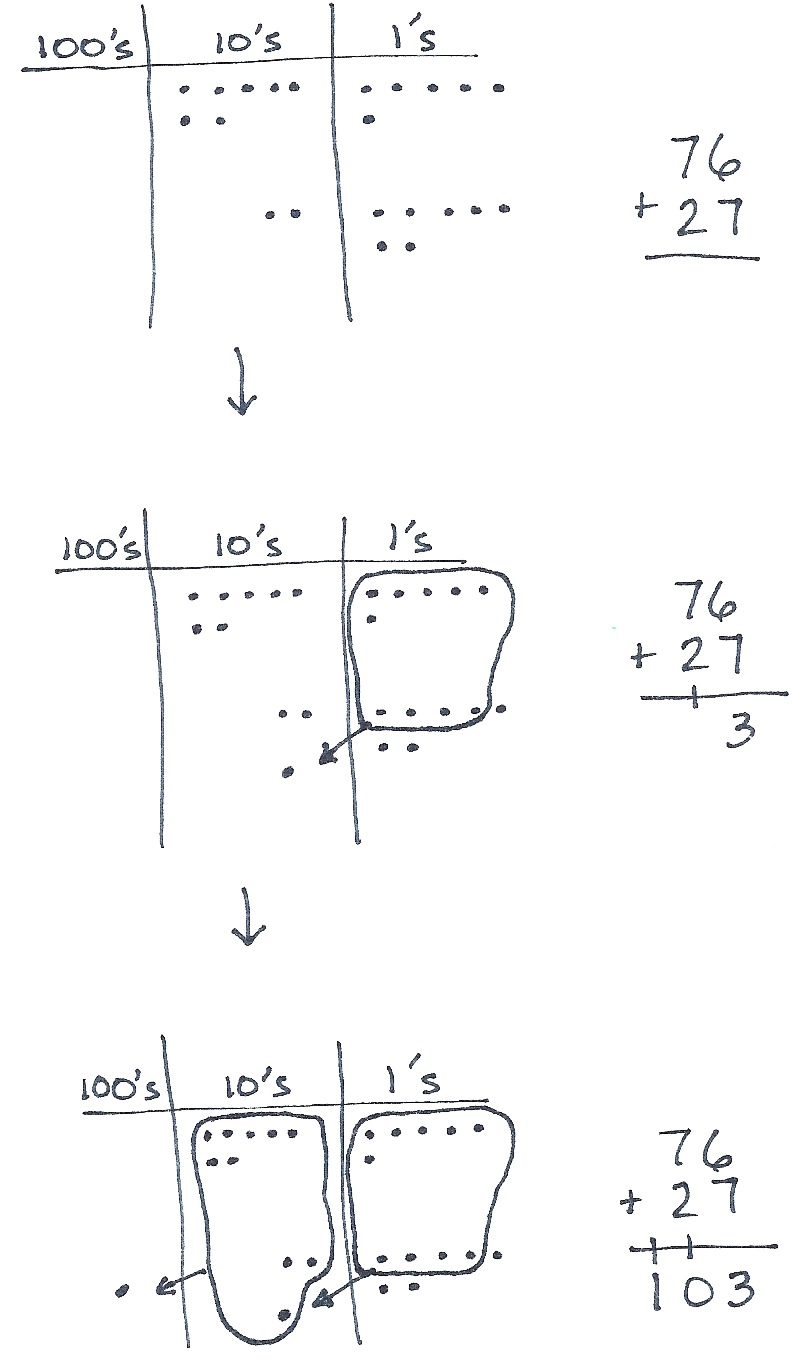 100's 10's 1's
76
+ 27
100's 10's 1's
76
+ 27
3
100's 10's 1's
76
+ 27
103